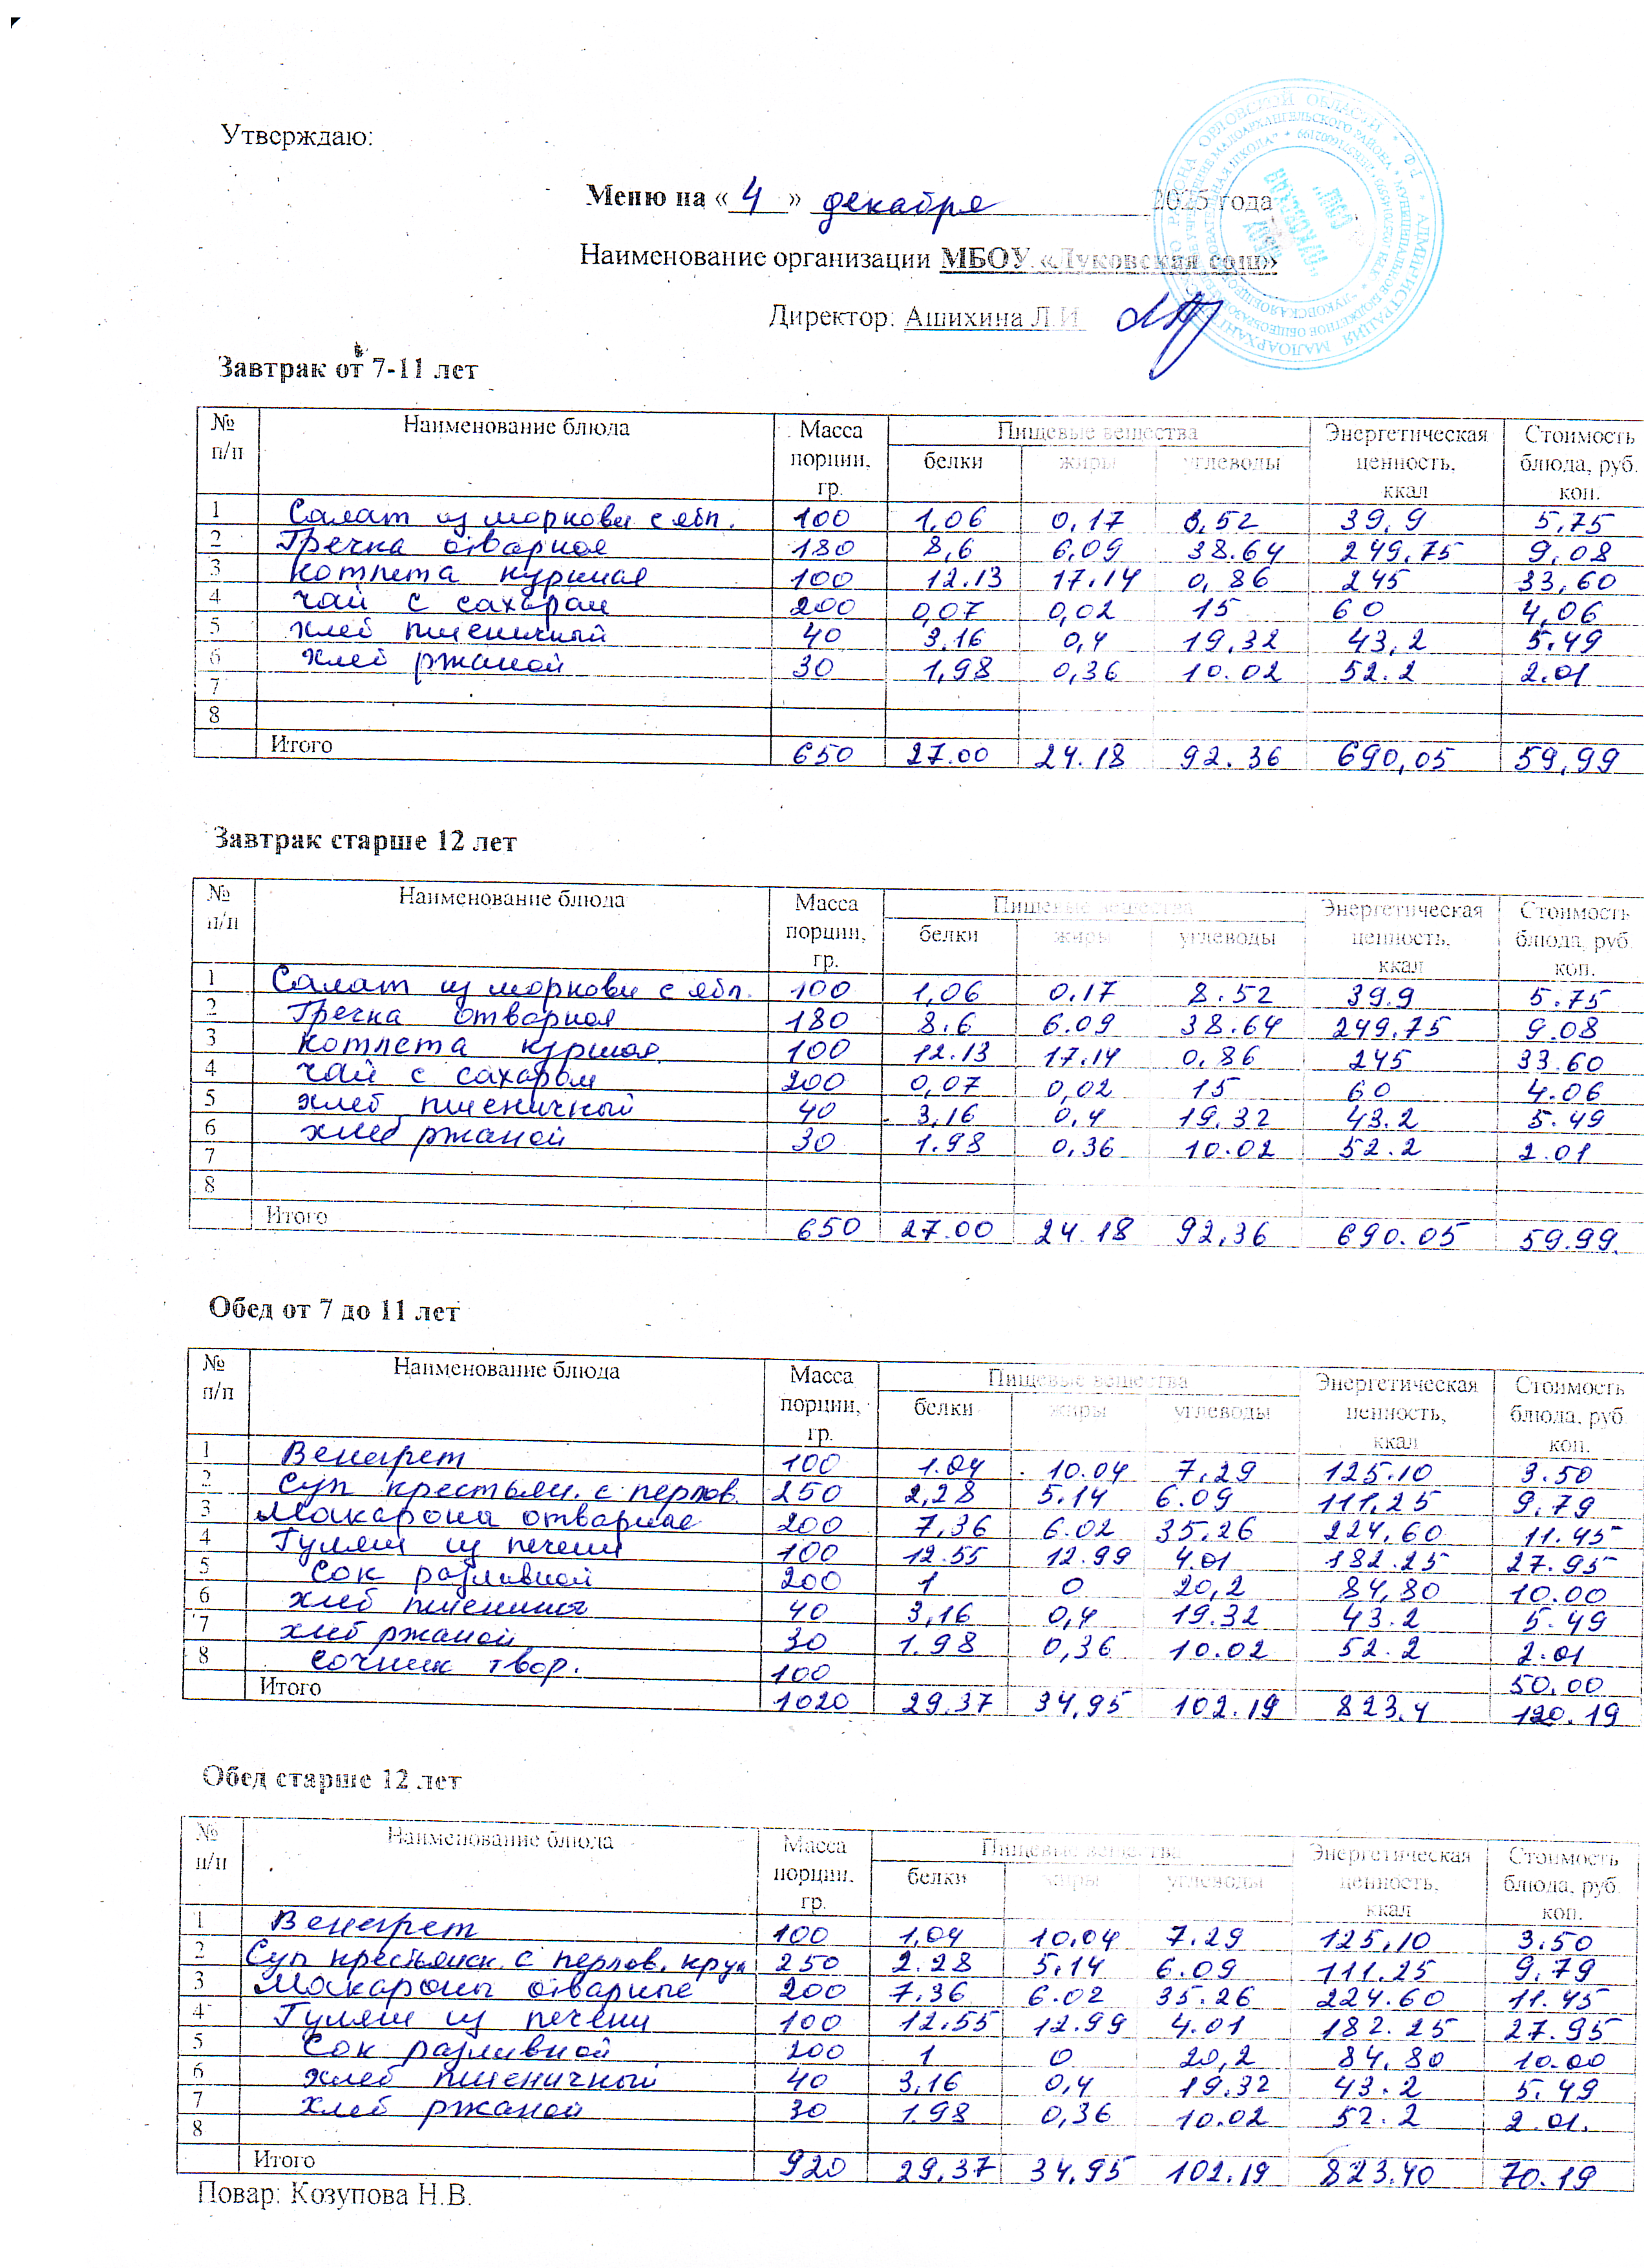 Утверждаю:
Меню на « 4 » декабря 2025 года
Наименование организации МБОУ «Луковская сош»
Директор: Ашихина Л.И.
Завтрак от 7-11 лет
№ п/п Наименование блюда Масса порции, гр. Пищевые вещества белки жиры углеводы Энергетическая ценность, ккал Стоимость блюда, руб. коп.
1 Салат из моркови с ябл. 100 1,06 0,17 8,52 39,9 5,75
2 Гречка отварная 180 8,6 6,09 38.64 249,75 9,08
3 котлета куриная 100 12.13 17.14 0,86 245 33,60
4 чай с сахаром 200 0,07 0,02 15 60 4,06
5 хлеб пшеничный 40 3,16 0,4 19,32 43,2 5.49
6 хлеб ржаной 30 1,98 0,36 10.02 52.2 2.01
7
8
Итого 650 27.00 24.18 92.36 690,05 59,99
Завтрак старше 12 лет
№ п/п Наименование блюда Масса порции, гр. Пищевые вещества белки жиры углеводы Энергетическая ценность, ккал Стоимость блюда, руб. коп.
1 Салат из моркови с ябл. 100 1,06 0.17 8.52 39.9 5.75
2 Гречка отварная 180 8.6 6.09 38.64 249.75 9.08
3 котлета куриная 100 12.13 17.14 0.86 245 33.60
4 чай с сахаром 200 0,07 0,02 15 60 4.06
5 хлеб пшеничный 40 3,16 0,4 19,32 43.2 5.49
6 хлеб ржаной 30 1.98 0,36 10.02 52.2 2.01
7
8
Итого 650 27.00 24.18 92,36 690.05 59.99.
Обед от 7 до 11 лет
№ п/п Наименование блюда Масса порции, гр. Пищевые вещества белки жиры углеводы Энергетическая ценность, ккал Стоимость блюда, руб. коп.
1 Венегрет 100 1.04 10.04 7.29 125.10 3.50
2 Суп крестьян. с перлов. 250 2,28 5.14 6.09 111,25 9,79
3 Макароны отварные 200 7,36 6.02 35,26 224,60 11.45
4 Гуляш из печени 100 12.55 12.99 4.01 182.25 27.95
5 Сок разливной 200 1 0 20,2 84,80 10.00
6 хлеб пшенично 40 3,16 0,4 19.32 43.2 5.49
7 хлеб ржаной 30 1.98 0,36 10.02 52.2 2.01
8 сочник твор. 100 50,00
Итого 1020 29.37 34,95 102.19 823,4 120.19
Обед старше 12 лет
№ п/п Наименование блюда Масса порции, гр. Пищевые вещества белки жиры углеводы Энергетическая ценность, ккал Стоимость блюда, руб. коп.
1 Венегрет 100 1,04 10,04 7.29 125,10 3.50
2 Суп крестьянск. с перлов. круп 250 2.28 5.14 6.09 111.25 9,79
3 Макароны отварные 200 7,36 6.02 35.26 224.60 11.45
4 Гуляш из печени 100 12.55 12.99 4.01 182.25 27.95
5 Сок разливной 200 1 0 20,2 84,80 10.00
6 хлеб пшеничный 40 3,16 0,4 19,32 43.2 5.49
7 хлеб ржаной 30 1.98 0,36 10.02 52.2 2.01.
8
Итого 920 29,37 34,95 102.19 823.40 70.19
Повар: Козупова Н.В.